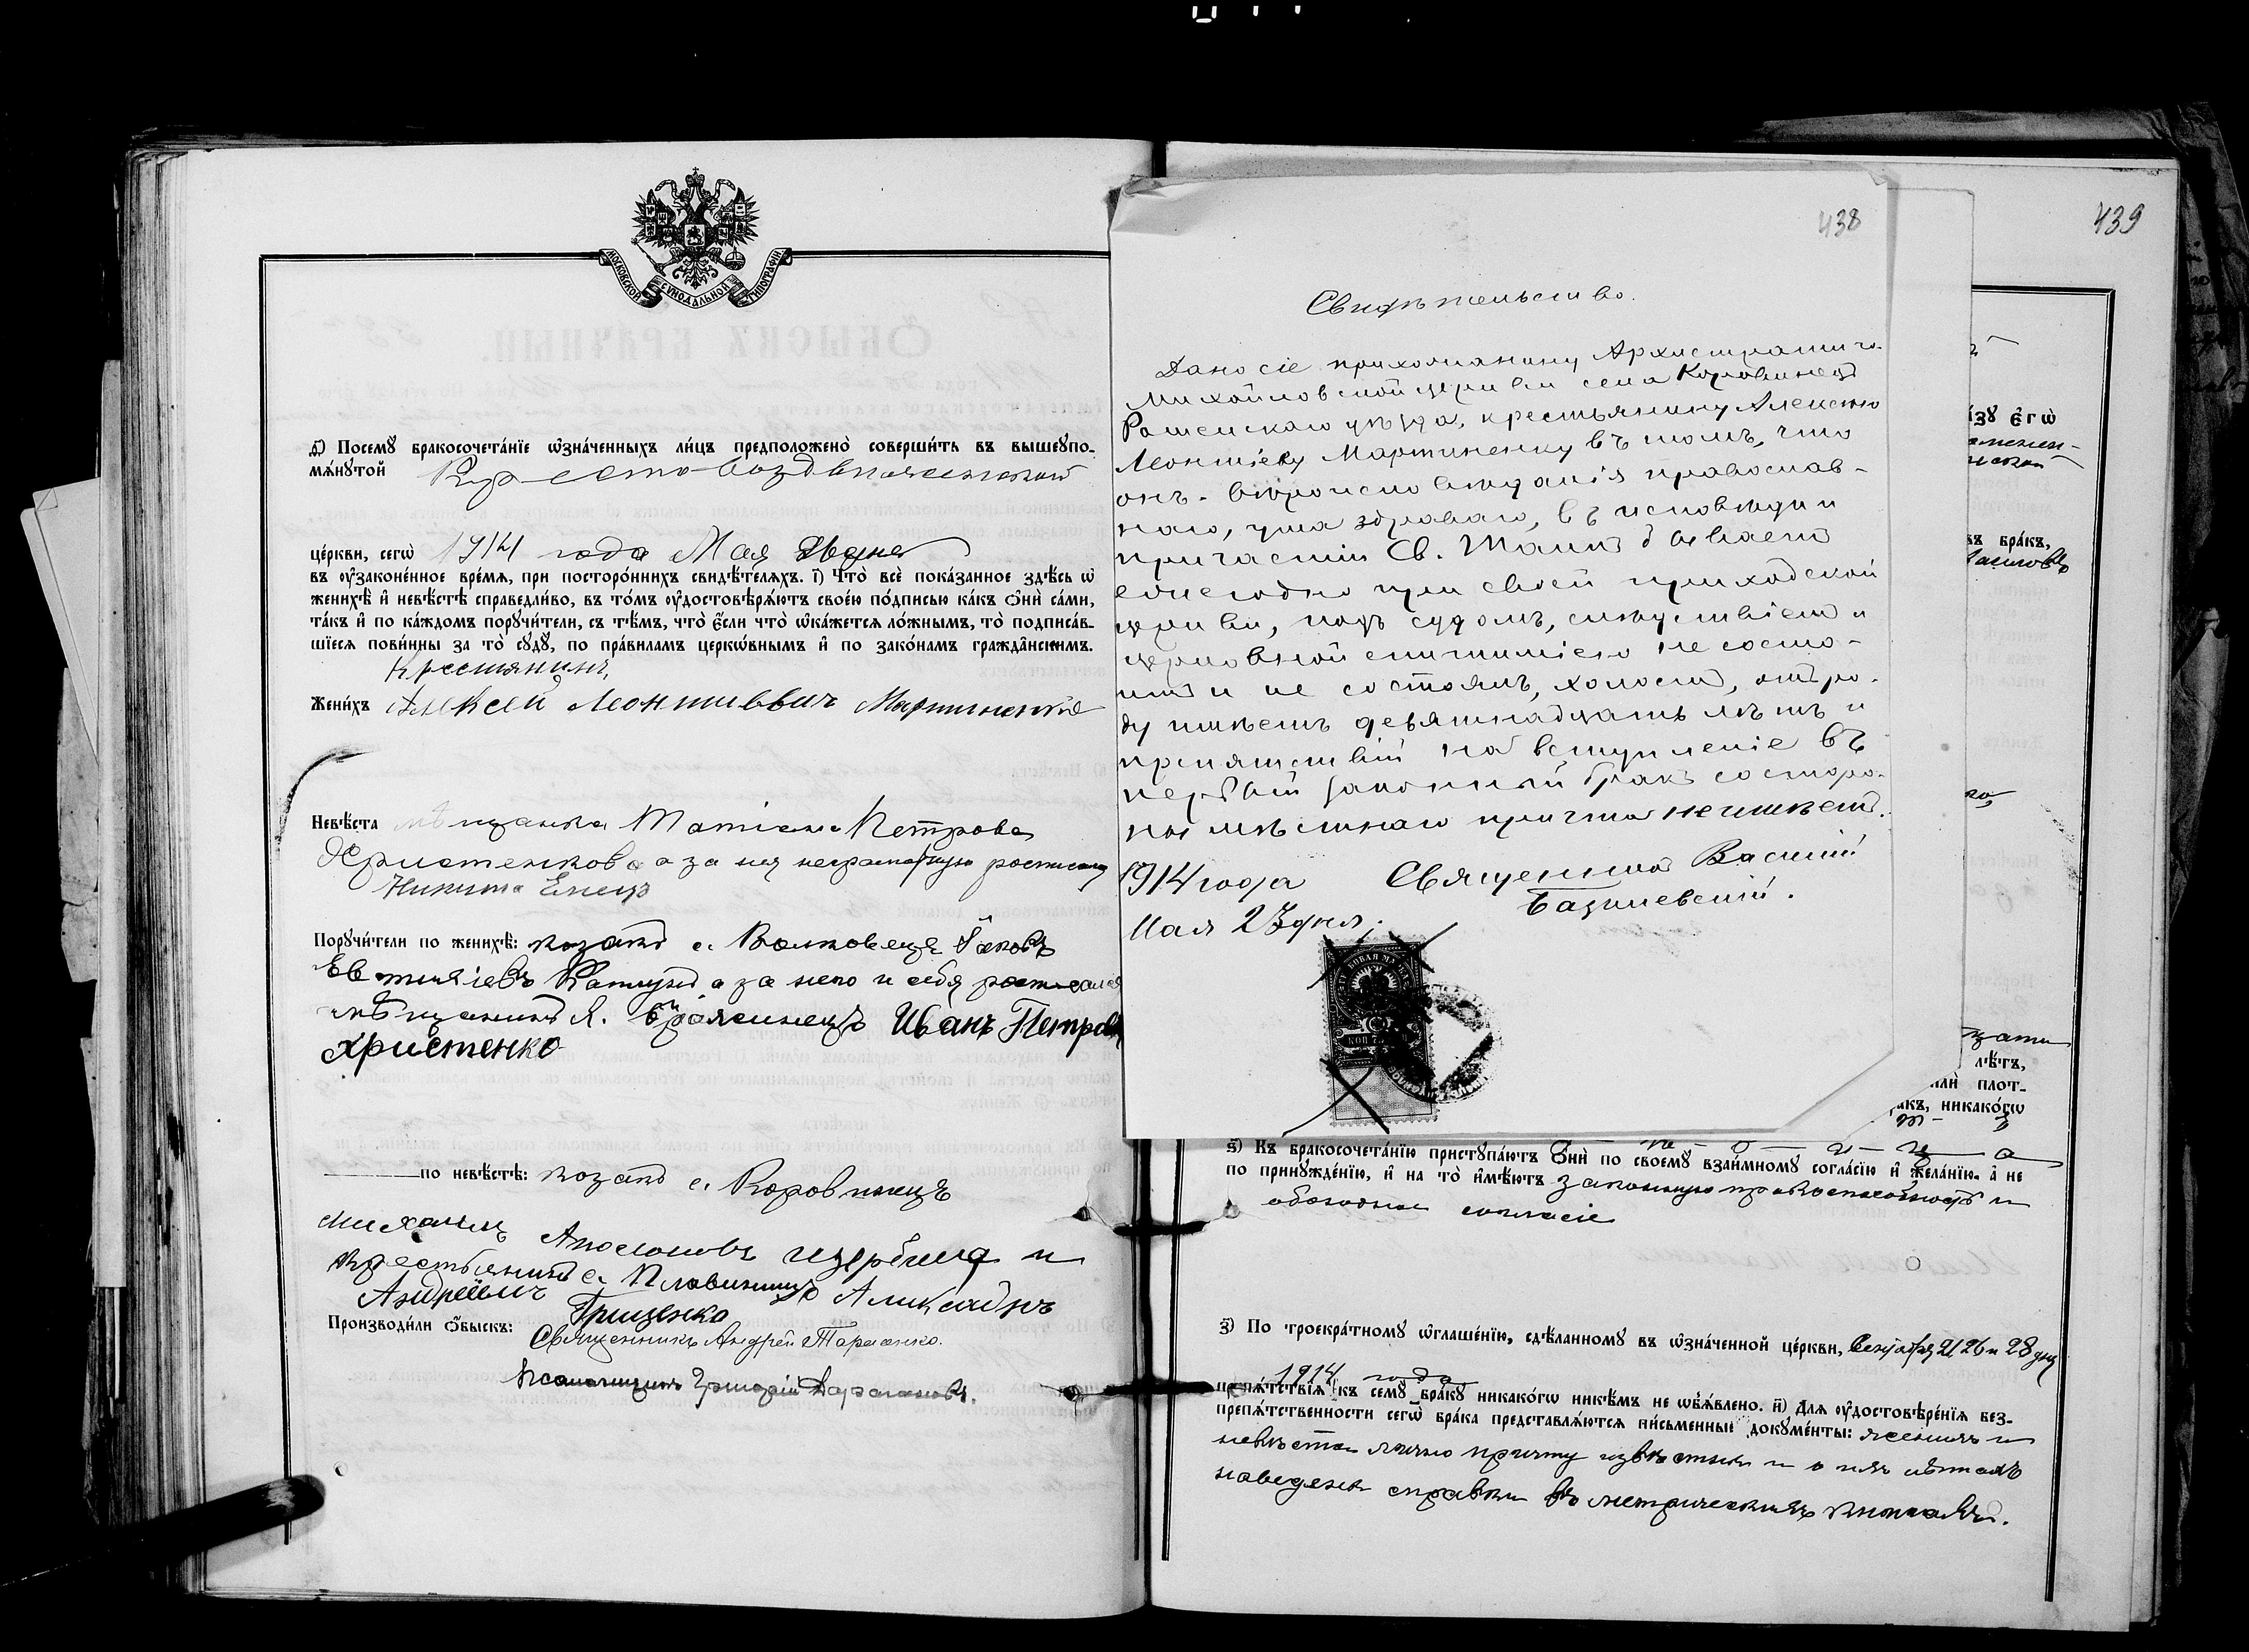 МОСКОВСКОЙ СѴНОДАЛЬНОЙ ТИПОГРАФІИ
д҃) Посемꙋ̀ бракосочета́нїе ѡ҆зна́ченныхъ ли́цъ предположено̀ соверши́ть въ вышеꙋпо-
мѧ́нꙋтой Кресто-Воздвиженской
це́ркви, сегѡ̀ 1914 года Мая дня
въ ᲂу҆законе́нное вре́мѧ, при посторо́ннихъ свидѣ́телѧхъ. і҃) Что̀ всѐ пока́занное здѣ́сь ѡ҆
женихѣ̀ и҆ невѣ́стѣ справедли́во, въ то́мъ ᲂу҆достовѣрѧ́ютъ свое́ю по́дписью ка́къ ѻ҆нѝ са́ми,
та́къ и҆ по ка́ждомъ порꙋчи́тели, съ тѣ́мъ, что̀ є҆́сли что̀ ѡ҆ка́жетсѧ ло́жнымъ, то̀ подписа́в-
шїесѧ пови́нны за то̀ сꙋдꙋ̀, по пра́виламъ церкѡ́внымъ и҆ по зако́намъ гражда̑нскимъ.
Крестянинъ,
Жени́хъ Алексей Леонтиевич Мартиненко
Невѣ́ста мѣщанка Татіана Петрова
Христенкова а за ня неграмотную росписался
Никита Елецъ
Порꙋчи́тели по женихѣ̀: козакъ с. Волковеца Яковъ
Евтихіевъ а за него и себя росписался
мѣщанинъ Иванъ Петровъ
Христенко
по невѣ́стѣ: козакъ с. Коровинецъ
Михаилъ и
крестьянинъ с. Плавинищъ Александръ
Андреевичъ Грищенко
Производи́ли ѻ҆́быскъ: Священникъ Андрей Тарасенко.
Псаломщикъ Григорій
438
Свидѣтельство.
Дано сіе прихожанину Архистратиго-
Михайловской церкви села Коровинецъ
Роменскаго уѣзда, крестьянину Алексѣю
Леонтіеву Мартиненку въ томъ, что
онъ - вѣроисповѣданія православ-
наго, ума здраваго, въ исповѣди и
причастіи Св. Таинъ бываетъ
ежегодно при своей приходской
церкви, подъ судомъ, слѣдствіемъ и
церковной епитиміею не состо-
итъ и не состоялъ, холостъ, отъ ро-
ду имѣетъ девятнадцать лѣтъ и
препятствій на вступленіе въ
первый законный бракъ со сторо-
ны мѣстнаго причта не имѣетъ.
1914 года Священникъ Василій
Мая 23 дня; Базилевскій.
439
ꙗ́зꙋ є҆гѡ̀
въ бра́къ,
лѣ́тъ,
и҆лѝ пло́т-
никако́гѡ
ѕ҃) Къ бракосочета́нїю пристꙋпа́ютъ ѻ҆нѝ по своемꙋ̀ взаи́мномꙋ согла́сїю и҆ жела́нїю, а҆ не
по принꙋжде́нїю, и҆ на то̀ и҆мѣ́ютъ законную правоспособность и
обоюдное согласіе
з҃) По троекра́тномꙋ ѡ҆глаше́нїю, сдѣ́ланномꙋ въ ѡ҆зна́ченной це́ркви, Сентября 21, 26 и 28 дня
1914 года
препѧ́тствїѧ къ семꙋ̀ бра́кꙋ никако́гѡ никѣ́мъ не ѡ҆б̾ѧ́влено. и҃) Для ᲂу҆достовѣре́нїѧ без-
препѧ́тственности сегѡ̀ бра́ка представлѧ́ютсѧ пи́сьменные докꙋме́нты: женихъ и
невѣста лично причту извѣстны и о ихъ лѣтахъ
наведены справки въ метрическихъ книгахъ.